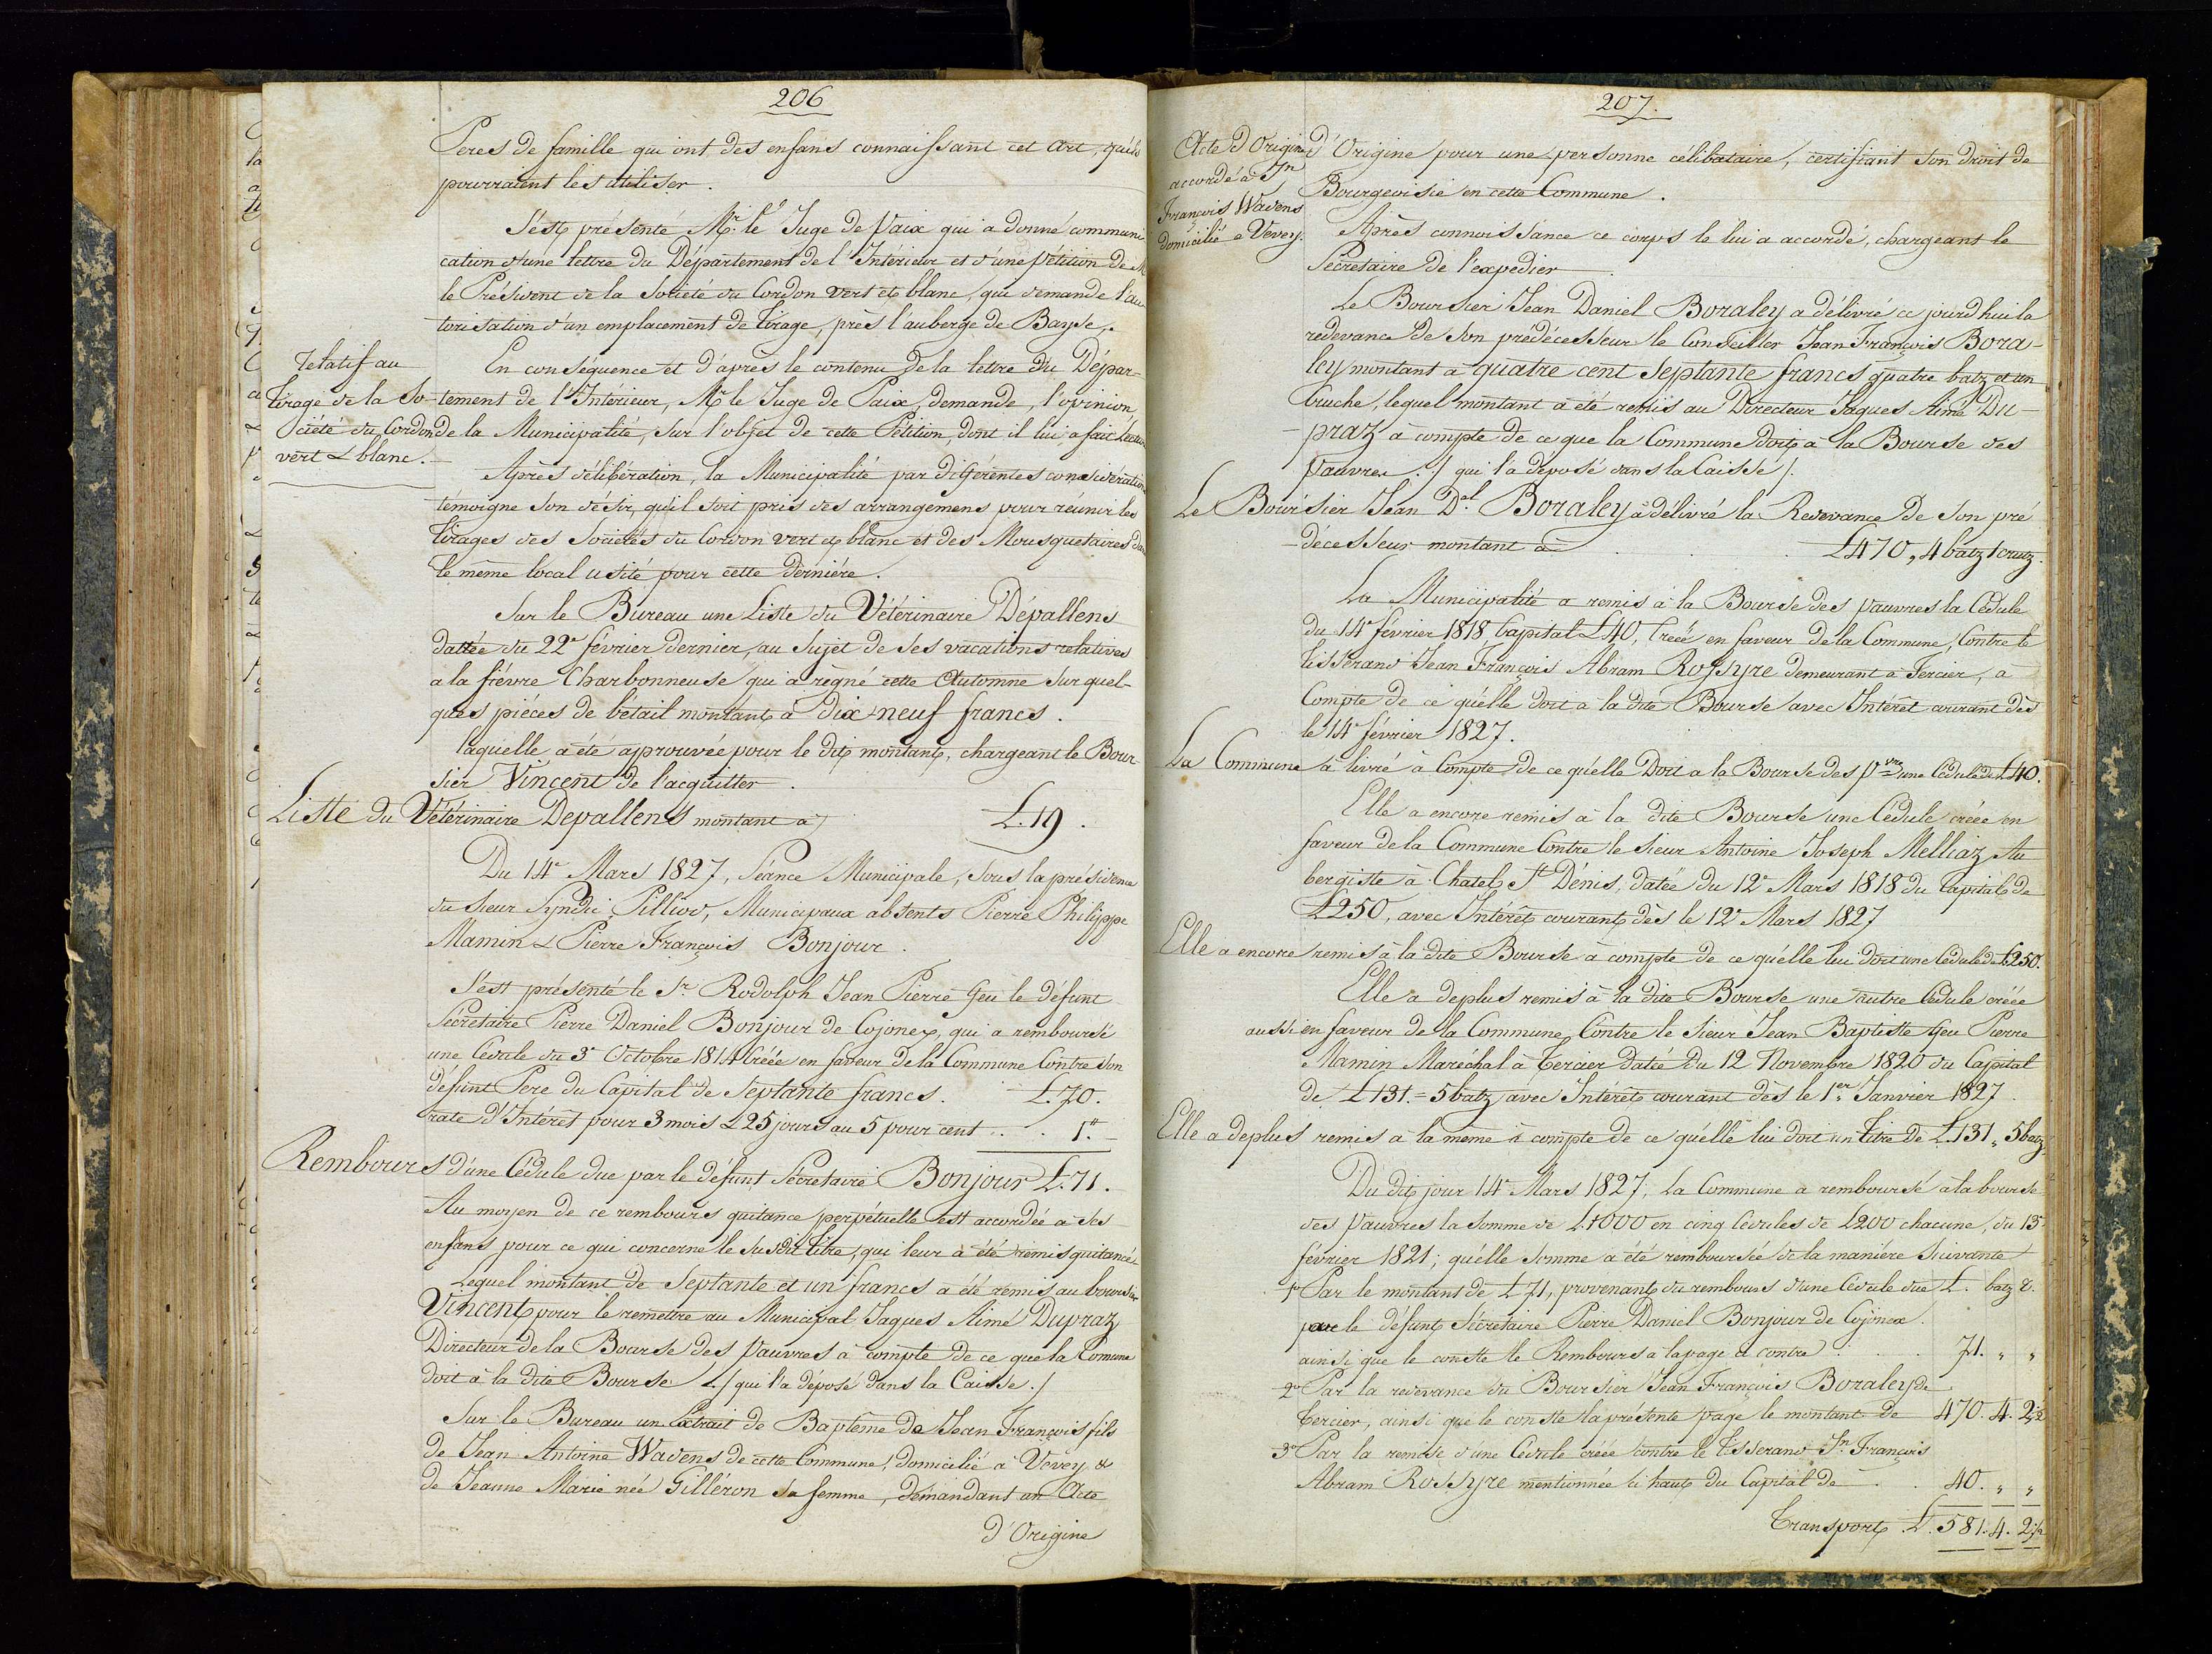 206
Peres de famille qui ont des enfans connaissant cet Art, qu'ils
pourraient les utiliser.
S'est présenté Mr. le Juge de Paix qui a donné communi
cation d'une lettre du Département de l'Intérieur et d'une Pétition de M
le Président de la Société du Cordon vert et blanc, qui demande l'au
torisation d'un emplacement de Tirage, près l'auberge de Bayse.
En conséquence et d'après le contenu de la lettre du Dépar-
relatif au
Tirage de la So-
ciété du Cordon
vert & blanc.
tement de l'Intérieur, Mr. le Juge de Paix, demande, l'opinion,
de la Municipalité, sur l'objet de cette Pétition, dont il lui a fait Lecture
Après délibération, la Municipalité par différentes considération
témoigne son désir, qu'il soit pris des arrangemens pour réunir les
Tirages des Sociétés du Cordon vert et blanc et des Mousquetaires dans
le même local usité pour cette dernière.
Sur le Bureau une Liste du Vétérinaire Dépallens
dattée du 22e février dernier, au sujet de ses vacations relatives
a la fiévre Charbonneuse qui a règné cette Automne sur quel-
ques piéces de betail montant à Dix-neuf francs.
laquelle a été approuvée pour le dit montant, chargeant le Bour-
sier Vincent de l'acquitter.
Liste du Vétérinaire Depallens montant à L. 19.
Du 14e Mars 1827, Séance Municipale, sous la présidence
du Sieur Syndic Pilliod, Municipaux absents Pierre Philippe
Mamin & Pierre François Bonjour.
S'est présenté le Sr. Rodolph Jean Pierre feu le défunt
Sécretaire Pierre Daniel Bonjour de Cojonex, qui a remboursé
une Cédule du 3e Octobre 1814 Créée en faveur de la Commune Contre son
défunt Pere du Capital de Septante francs. L. 70.
rate d'Intérêt pour 3 mois & 25 jours au 5 pour cent . . . 1."
Rembours d'une Cédule due par le défunt Sécretaire Bonjour L. 71.
Au moyen de ce rembours quitance perpétuelle est accordée à ses
enfans pour ce qui concerne le susdit titre, qui leur a été remis quitancé.
Lequel montant de Septante et un francs a été remis au boursier
Vincent pour le remettre au Municipal Jaques Aimé Dupraz
Directeur de la Bourse des Pauvres à compte de ce que la Comune
doit à la dite Bourse ./ qui l'a déposé dans la Caisse ./
Sur le Bureau un Extrait de Baptême de Jean François fils
de Jean Antoine Wadens de cette Commune, domicilié à Vevey &
de Jeanne Marie née Gilléron sa femme, demandant un Acte
d'Origine
207.
Acte d'Origine
accordé à Jn
François Wadens
domicilié a Vevey.
d'Origine pour une personne célibataire, certifiant son droit de
Bourgeoisie en cette Commune.
Après connoissance ce corps le lui a accordé, chargeant le
Sécretaire de l'expedier
Le Boursier Jean Daniel Boraley a délivré ce jourd'hui la
redevance de son prédécesseur le Conseiller Jean François Bora-
ley montant à quatre cent Septante francs quatre batz et un
Cruche, lequel montant a été remis au Directeur Jaques Aimé Du-
praz à compte de ce que la Commune doit a la Bourse des
Pauvres ./ qui l'a déposé dans la Caisse /.
Le Boursier Jean Dal. Boraley a délivré la Redevance de son pré
décesseur montant à . . . L 470, 4 batz 1 cruz.
La Municipalité a remis à la Bourse des pauvres la Cédule
du 14e février 1818 Capital L 40, Créée en faveur de la Commune, Contre le
Tisserand Jean François Abram Rossyre demeurant a Tercier, a
Compte de ce qu'elle doit à la dite Bourse avec Intérêt courant dès
le 14e février 1827.
La Commune a livré à Compte de ce qu'elle Doit a la Bourse des Pvres une Cédule de L 40.
Elle a encore remis à la dite Bourse une Cédule créée en
faveur de la Commune Contre le Sieur Antoine Joseph Melliaz Au
bergiste à Chatel St Dénis, datée du 12e Mars 1818 du Capital de
L 250, avec Intérêt courant dès le 12e Mars 1827
Elle a encore remis à la dite Bourse à compte de ce qu'elle lui doit une Cédule de L 250.
Elle a deplus remis à la dite Bourse une autre Cédule créée
aussi en faveur de la Commune, Contre le Sieur Jean Baptiste feu Pierre
Mamin Maréchal à Tercier datée du 12 Novembre 1820 du Capital
de L 131. = 5 batz avec Intérêt courant dès le 1er Janvier 1827.
Elle a deplus remis à la même à compte de ce qu'elle lui doit un Titre de L. 131 " 5 batz.
Du dit jour 14e Mars 1827, La Commune a remboursé a la bourse
des Pauvres la somme de L. 1000 en cinq Cédules de L 200 chacune, du 13e
février 1821; qu'elle somme a été remboursée de la manière suivante
1º Par le montant de L 71, provenant du rembours d'une Cédule due L. batz r.
par le défunt Sécretaire Pierre Daniel Bonjour de Cojonex.
ainsi que le conste le Rembours a la page ci contre . . . 71. " "
2º Par la redevance du Boursier Jean François Boraley de
Tercier, ainsi que le conste la présente page le montant de 470. 4. 2½
3º Par la remise d'une Cédule créée contre le Tisserand Jn François
Abram Rossyre mentionnée ci haut du Capital de . . 40. " "
Transport L. 581. 4. 2½